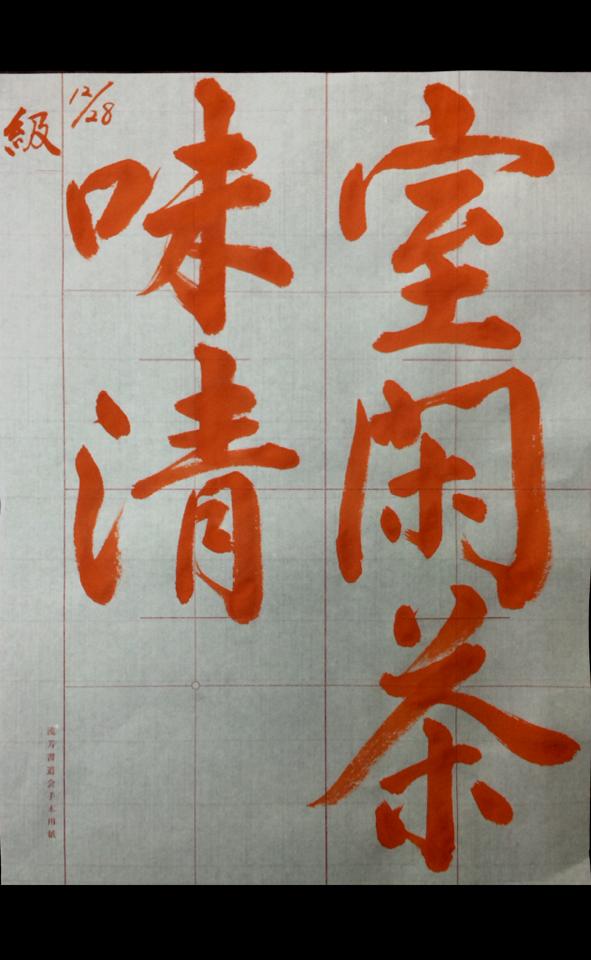 室閑茶
味清
12/28
級
洗芳書道会手本用紙